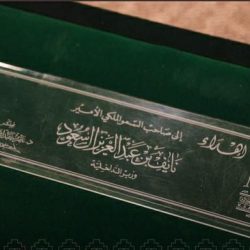 إهداء
إلى صاحب السمو الملكي الأمير
نايف بن عبد العزيز آل سعود
وزير الداخلية